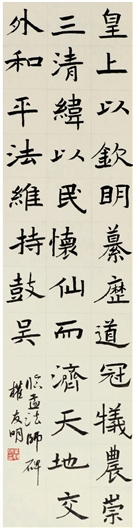 皇上以欽明纂歷道冠犧農崇
三清緯以民懷仙而濟天地交
外和平法維持鼓吳
臨孟法師碑
權友明